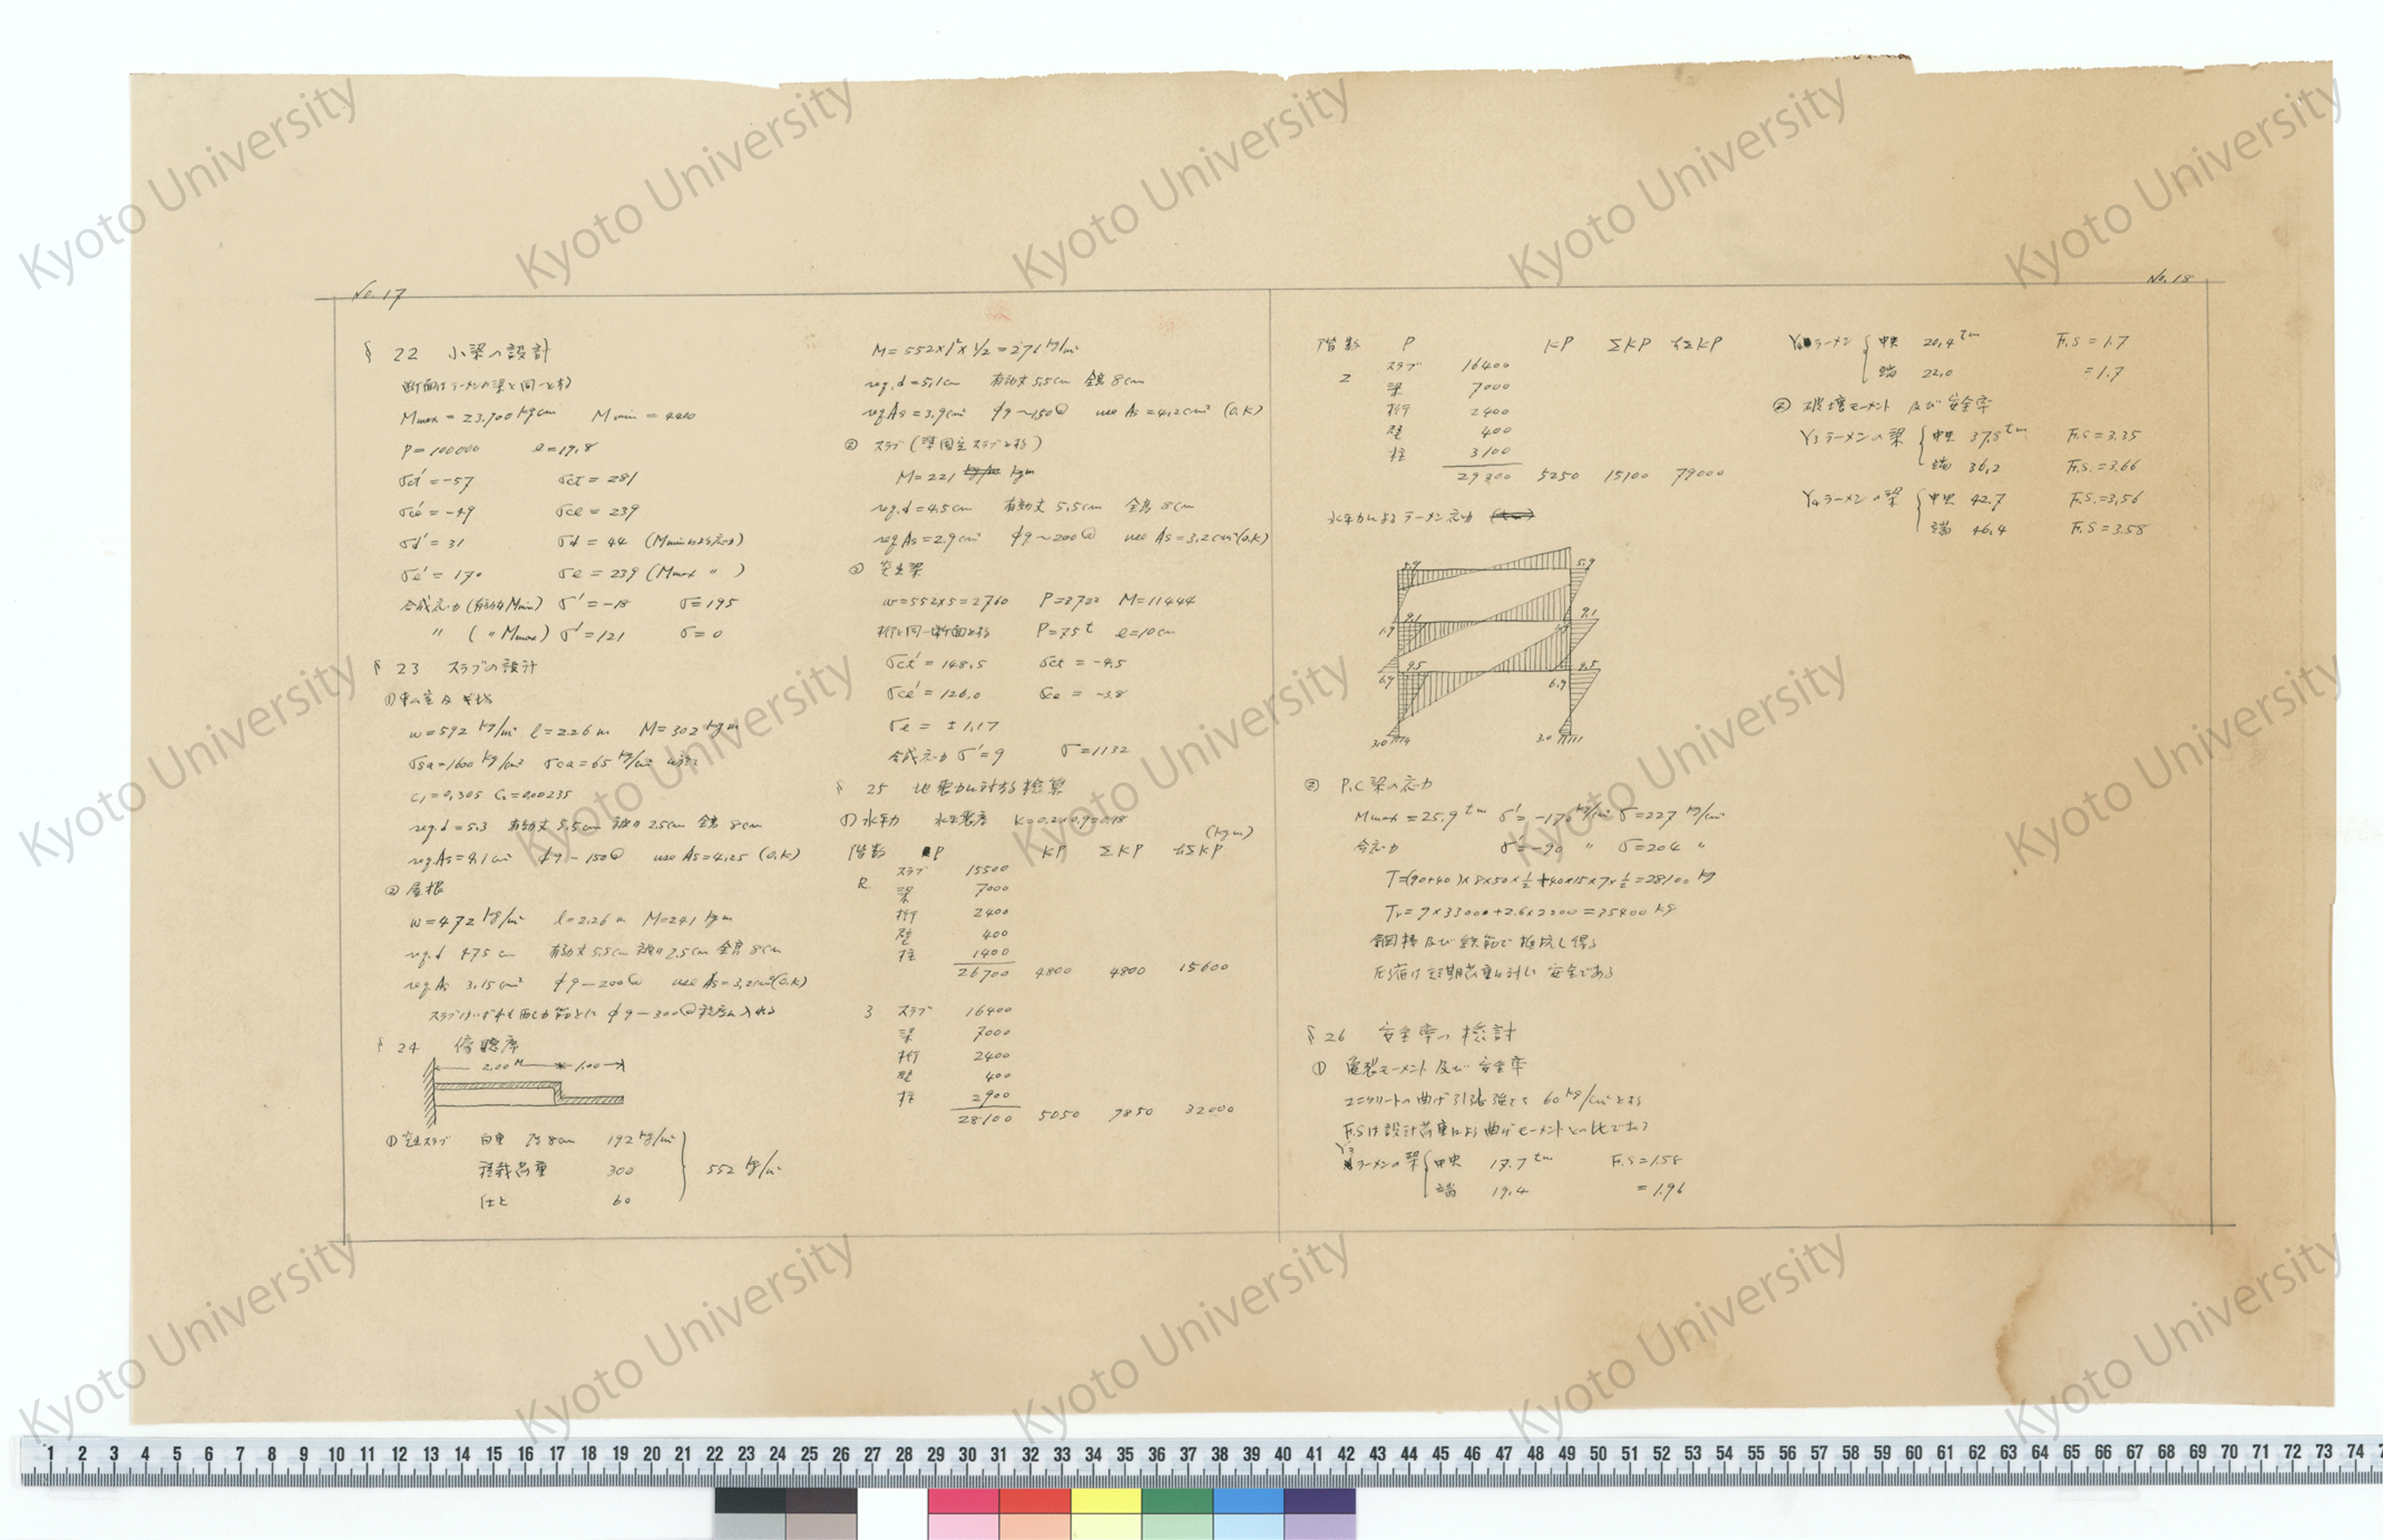 No. 17
§ 22 小梁の設計
断面はラーメンの梁と同一とする
Mmax = 23,700 kgcm Mmin = 4400
P = 100000 e = 19,8
σct' = -57 σct = 281
σce' = -49 σce = 239
σd' = 31 σd = 44 (Mminによる応力)
σe' = 170 σe = 239 (Mmax 〃 )
合成応力 (有効、Mmin) σ' = -18 σ = 195
〃 ( 〃 Mmax) σ' = 121 σ = 0
§ 23 スラブの設計
w = 592 kg/m² l = 2.26 m M = 302 kgm
σsa = 1600 kg/cm² σca = 65 kg/cm²
C₁ = 0,305 C₂ = 0,00235
req. d = 5.3 有効丈 5.5cm 被り 2.5cm 全高 8cm
req. As = 4,1cm² φ9 - 150@ use As = 4,25 (O.K)
② 屋根
w = 472 kg/m² l = 2.26 m M = 241 kgm
req. d 4.75 cm 有効丈 5.5cm 被り 2.5cm 全高 8cm
req. As 3,15cm² φ9 - 200@ use As = 3,2cm² (O.K)
スラブはいずれも φ9 - 300@程度に入れる
§ 24 傍聴席
2.00 M 1.00
① 突出スラブ 自重 厚8cm 192 kg/m²
積載荷重 300 552 kg/m²
仕上 60
M = 552×1²×1/2 = 276 kg/m²
req. d = 5,1cm 有効丈 5.5cm 全高 8cm
req As = 3,9cm² φ9 ~ 150@ use As = 4,2cm² (O.K)
② スラブ (準固定スラブとする)
M = 221 kgm
req. d = 4.5cm 有効丈 5.5cm 全高 8cm
req As = 2.9cm² φ9 ~ 200@ use As = 3,2cm² (O.K)
③ 突出梁
w = 552×5 = 2760 P = 3722 M = 11444
桁と同一断面とする P = 75t e = 10cm
σct' = 148.5 σct = -4.5
σce' = 126.0 σce = -3.8
σe = ±1,17
合成応力 σ' = 9 σ = 1132
§ 25 地震力に対する検算
① 水平力 水平震度 K = 0.2×0.9 = 0.18
(kgm)
階数 P KP ΣKP hΣKP
R スラブ 15500
梁 7000
桁 2400
壁 400
柱 1400
26700 4800 4800 15600
3 スラブ 16400
梁 7000
桁 2400
壁 400
柱 2900
28100 5050 9850 32000
No. 18
階数 P KP ΣKP hΣKP
スラブ 16400
2 梁 7000
桁 2400
壁 400
柱 3100
29300 5250 15100 79000
水平力によるラーメン応力
5.9 5.9
9.1 9.1
1.9
9.5 9.5
6.9 6.9
3.0 3.0
② P.C梁の応力
Mmax = 25.9 tm σ' = -170 kg/cm² σ = 227 kg/cm²
合応力 σ' = -90 〃 σ = 204 〃
T = (90+40)×8×50×1/2 + 40×15×7×1/2 = 28100 kg
Tr = 7×33000 + 2.6×2200 = 35400 kg
鋼棒及び鉄筋で抵抗し得る
圧縮は短期荷重に対し安全である
§ 26 安全率の検討
① 亀裂モーメント及び安全率
コンクリートの曲げ引張強さを 60 kg/cm²とする
F.Sは設計荷重による曲げモーメントとの比である
Y3ラーメンの梁 中央 17.7 tm F.S = 1.58
端 19.4 = 1.96
Y4ラーメン 中央 20,4 tm F.S = 1.7
端 22.0 = 1.7
② 破壊モーメント 及び 安全率
Y3ラーメンの梁 中央 37,8 tm F.S = 3.35
端 36,2 F.S. = 3.66
Y4ラーメンの梁 中央 42.7 F.S. = 3,56
端 46,4 F.S = 3.58
Kyoto University